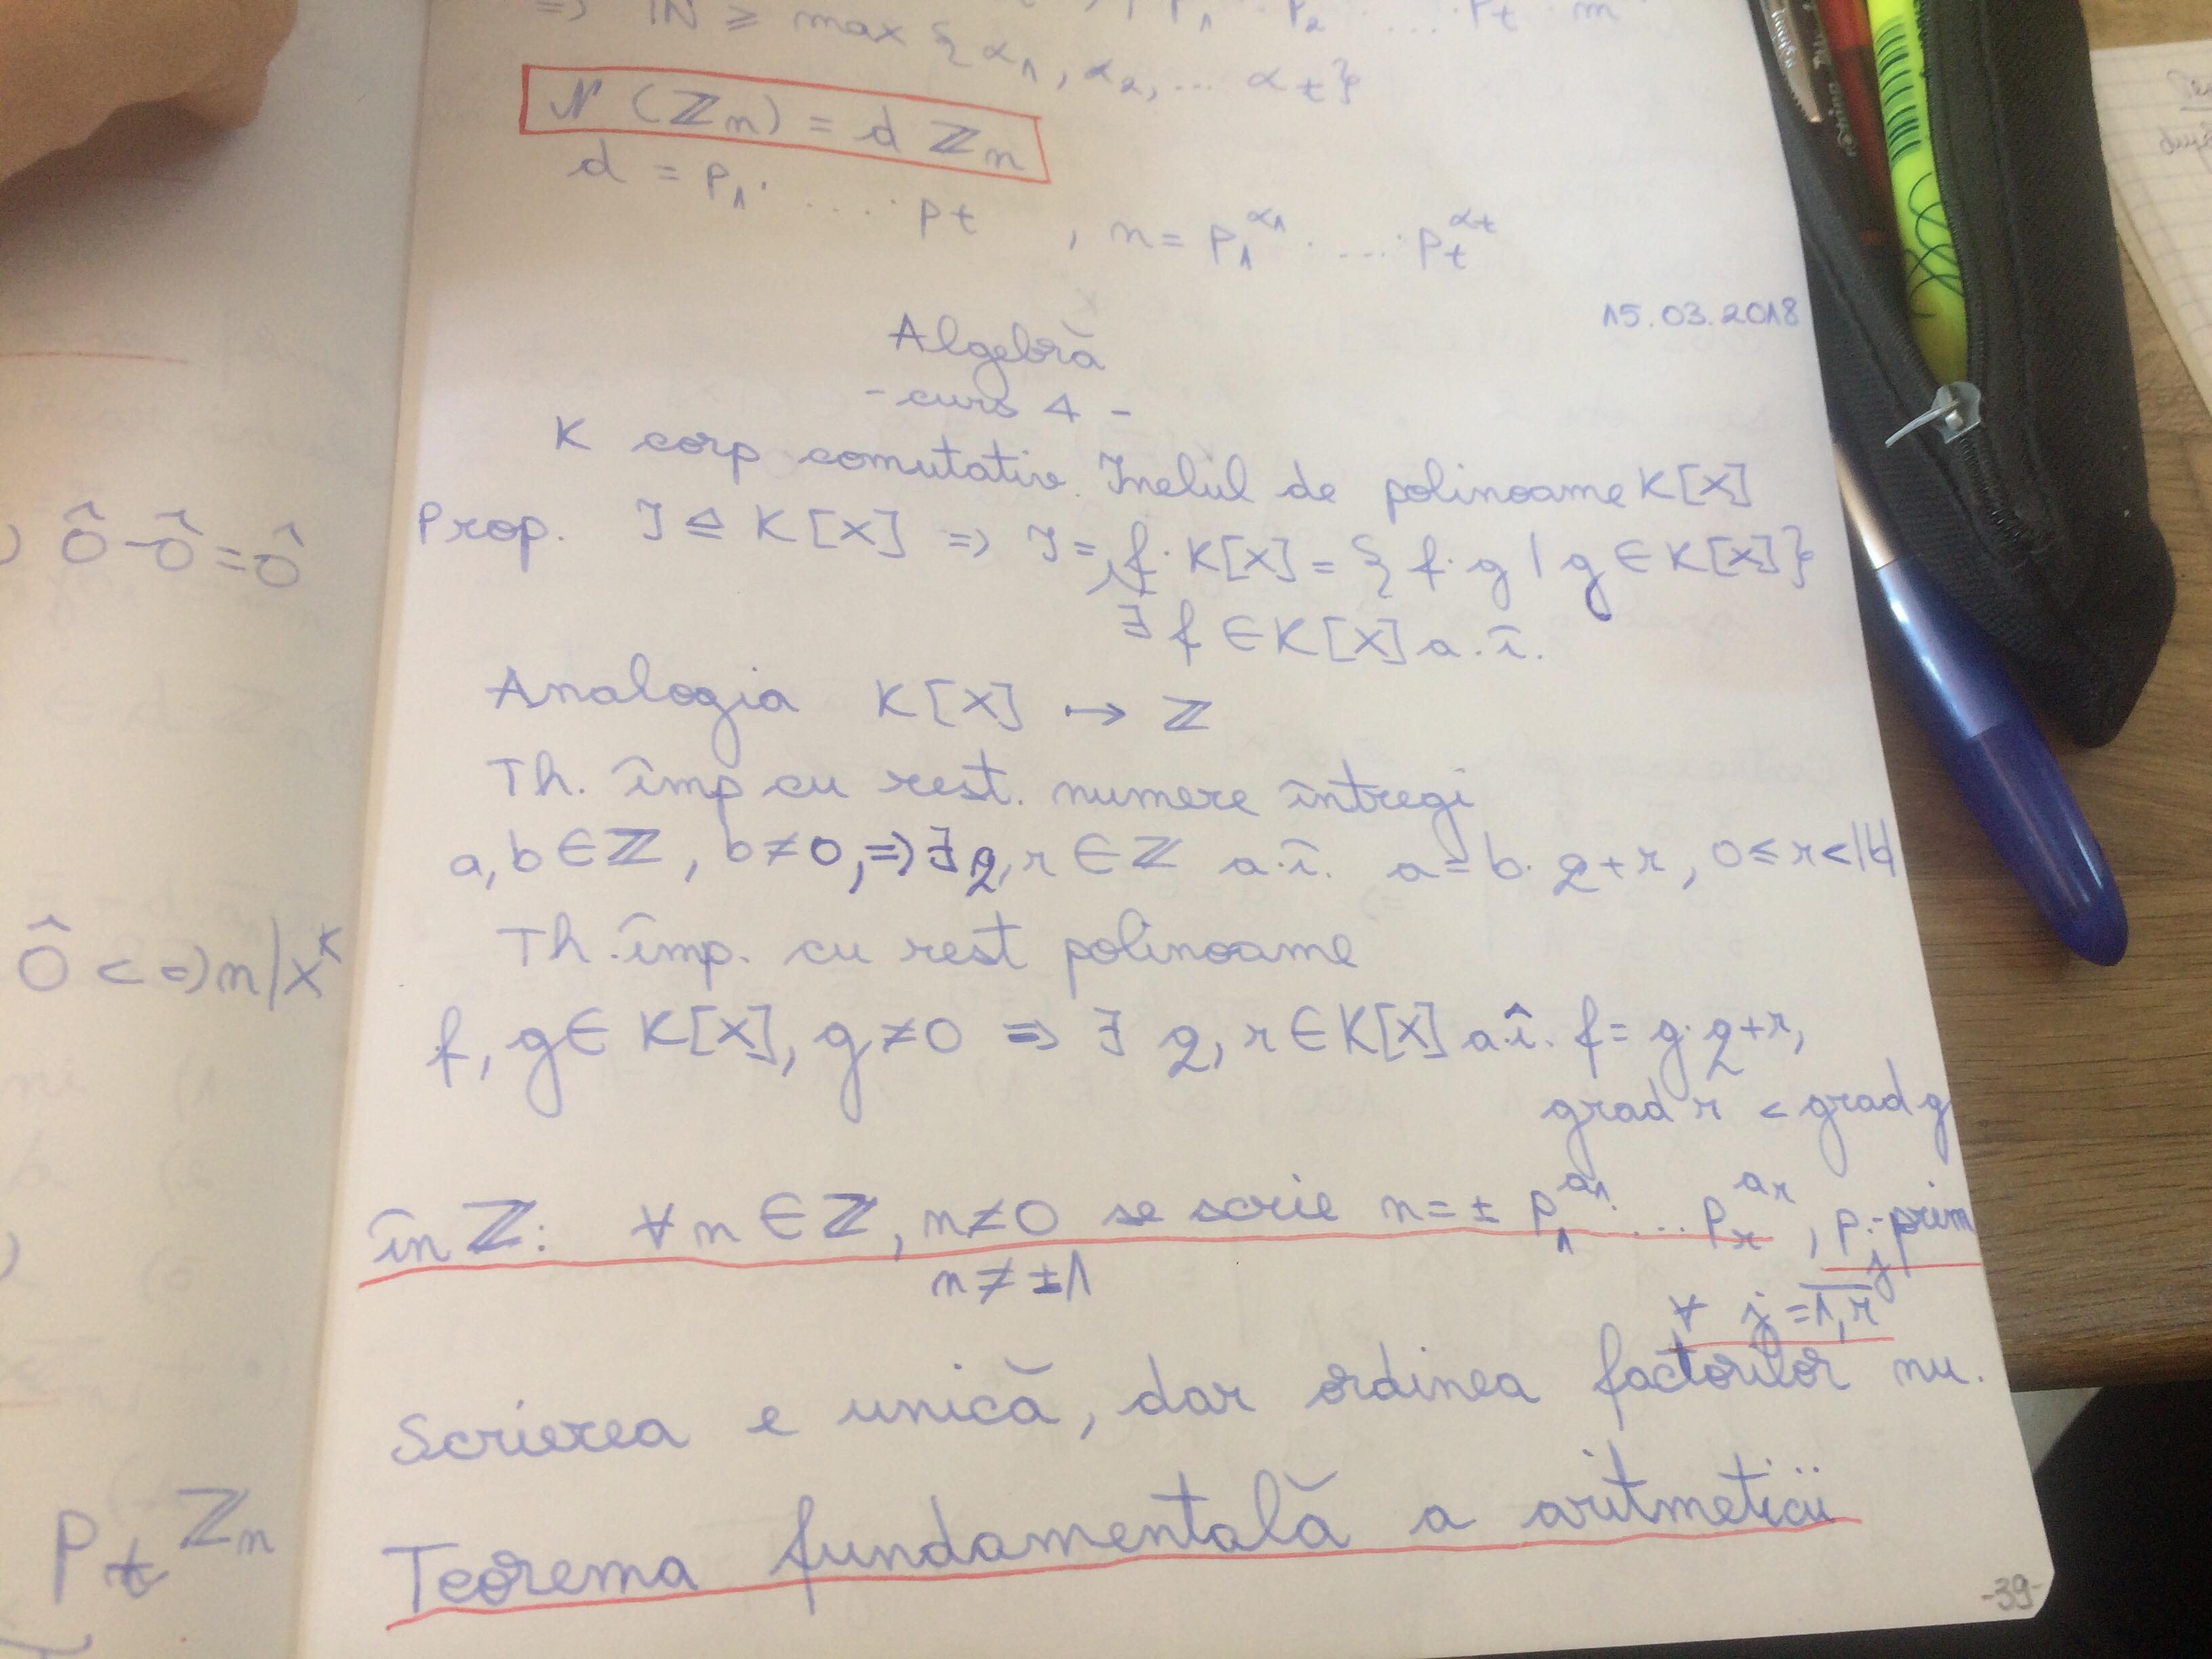 => N ⩾ max {α1, α2, ... αt}
N (ℤn) = d ℤn
d = p1 · .... · pt , n = p1^α1 · .... · pt^αt
15.03.2018
Algebră
- curs 4 -
K corp comutativ. Inelul de polinoame K[X]
Prop. I ⊴ K[X] => I = f · K[X] = { f · g | g ∈ K[X]}
∃ f ∈ K[X] a.î.
Analogia K[X] → ℤ
Th. împ cu rest. numere întregi
a, b ∈ ℤ, b ≠ 0, => ∃ q, r ∈ ℤ a.î. a = b · q + r, 0 ≤ r < |b|
Th. împ. cu rest polinoame
f, g ∈ K[X], g ≠ 0 => ∃ q, r ∈ K[X] a.î. f = g · q + r,
grad r < grad g
în ℤ: ∀ n ∈ ℤ, n ≠ 0 se scrie n = ± p1^a1 · ... pr^ar, pj - prim
n ≠ ±1
∀ j = 1,r
Scrierea e unică, dar ordinea factorilor nu.
Teorema fundamentală a aritmeticii
-39-
) ô - ô = ô
ô <=> n | x^k
Pt ℤn